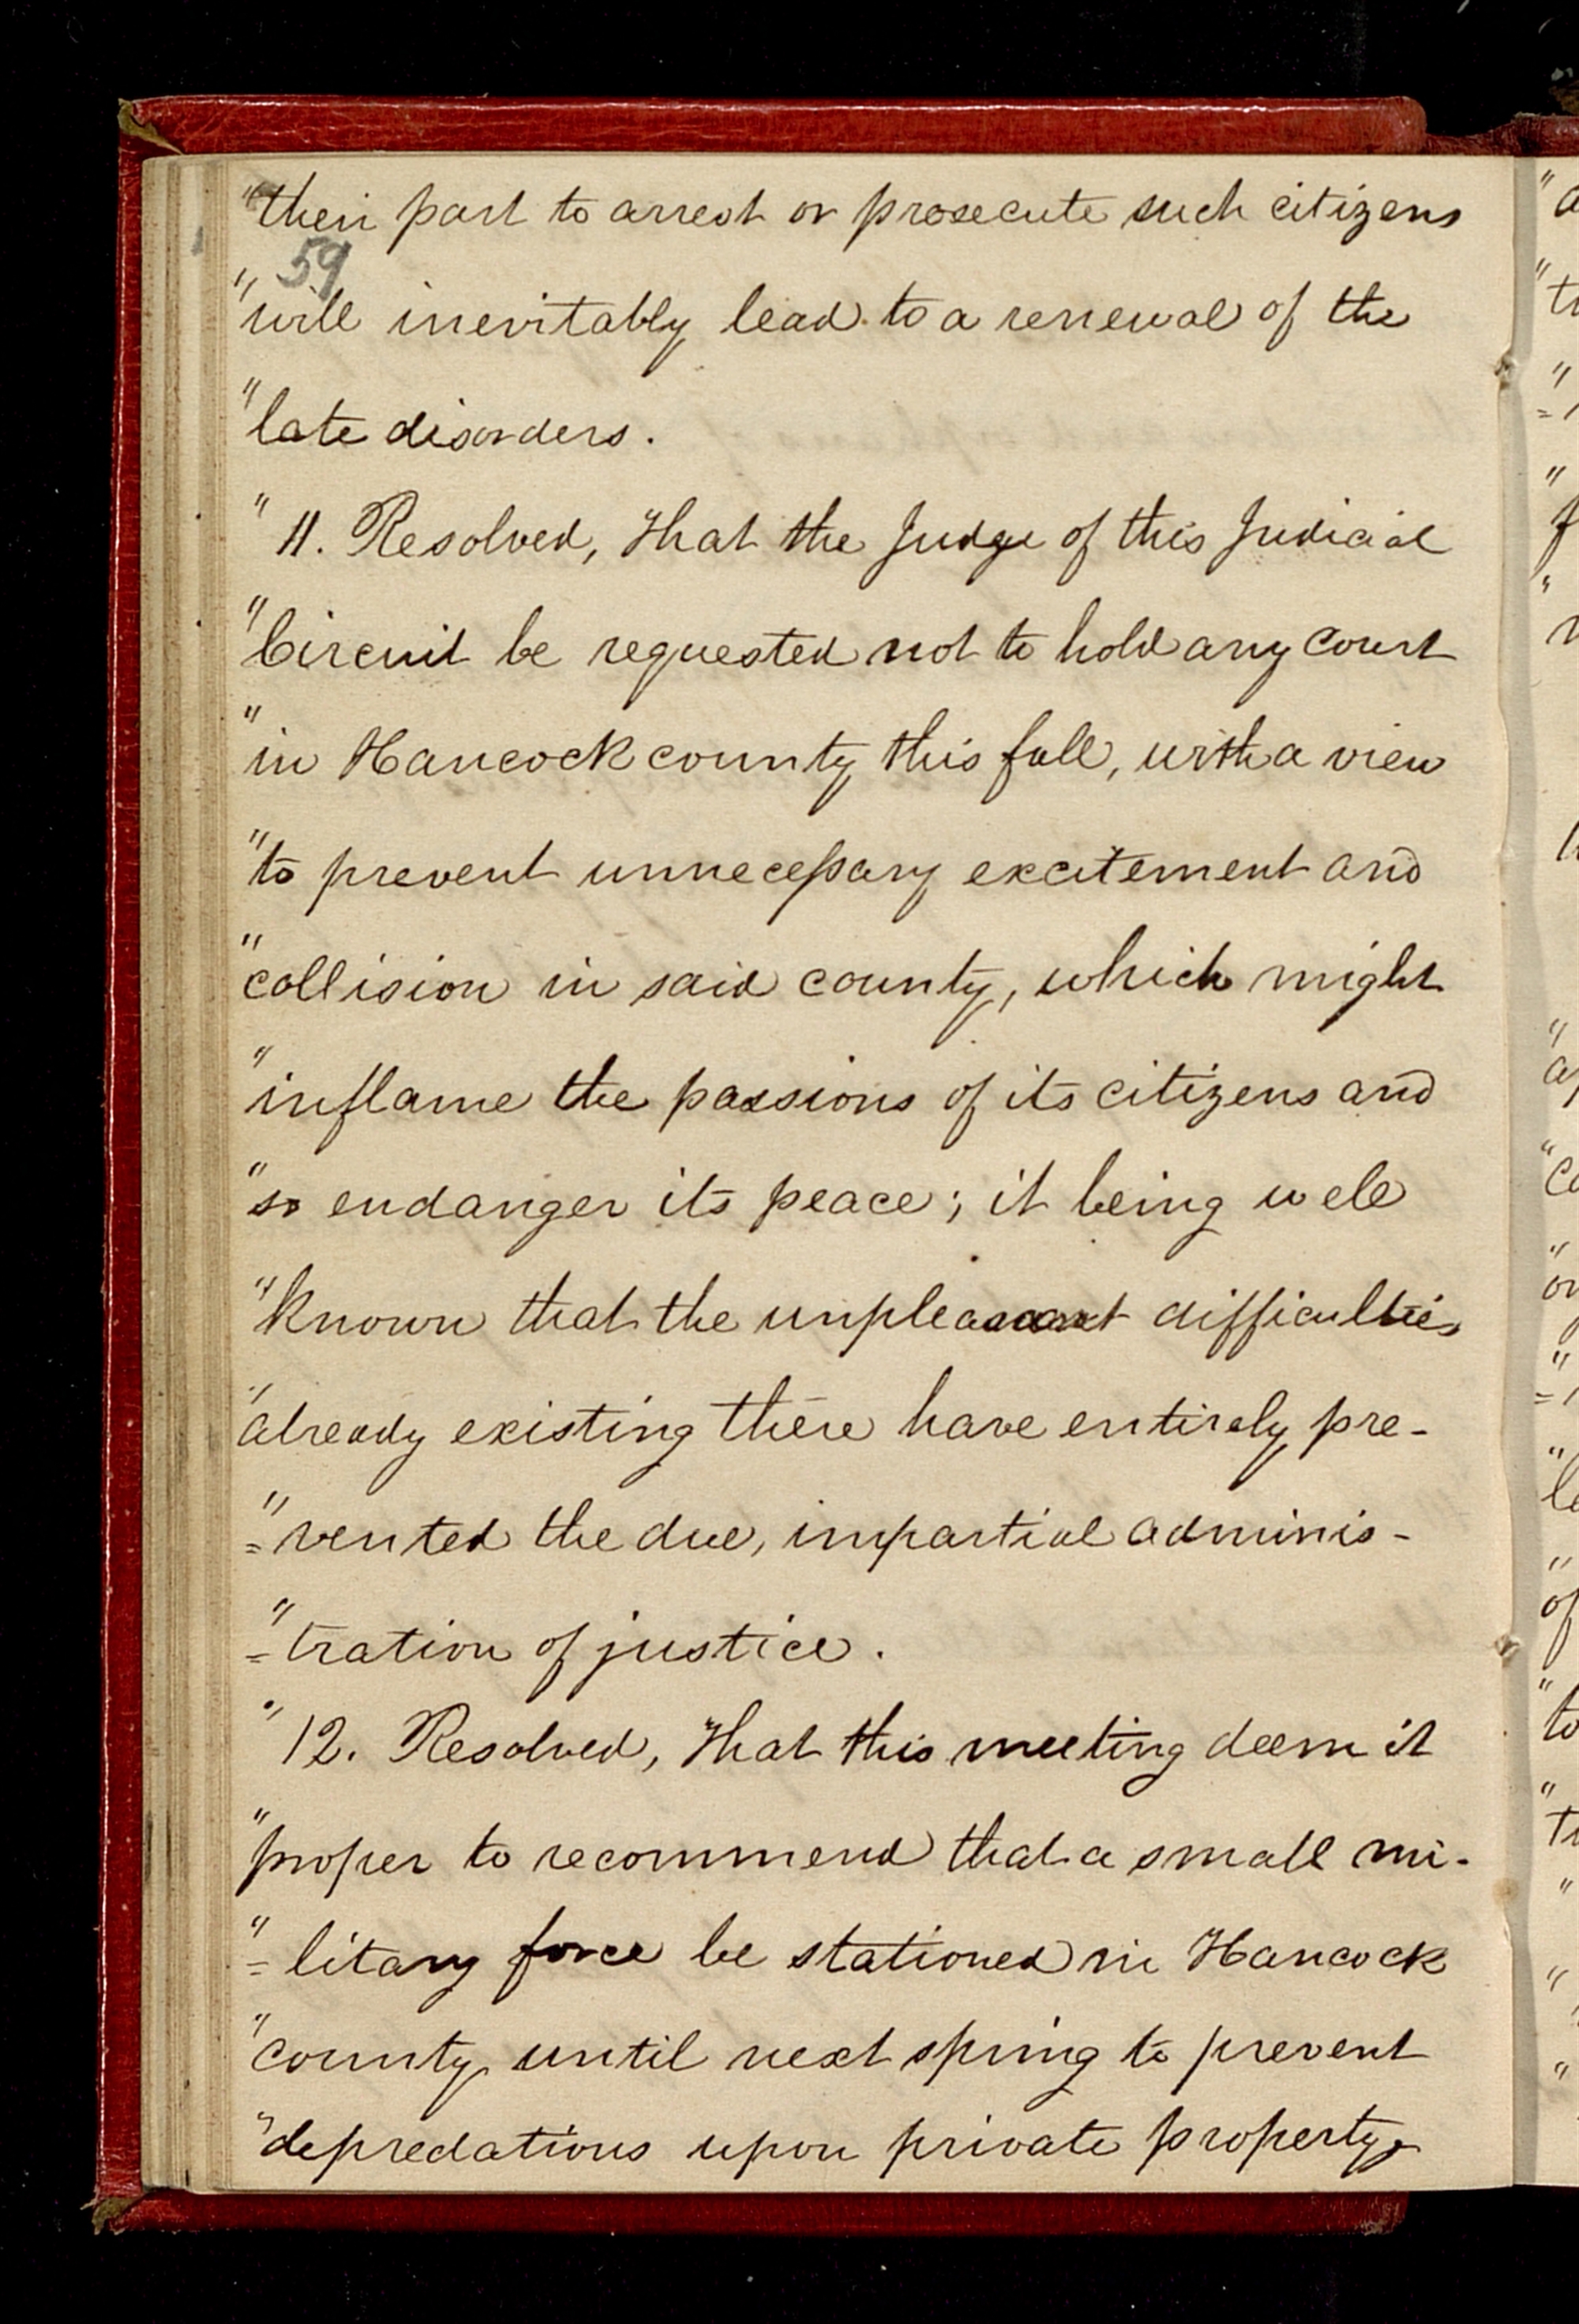 "their part to arrest or prosecute such citizens
59
"will inevitably lead to a renewal of the
"late disorders.
"11. Resolved, That the Judge of this Judicial
"Circuit be requested not to hold any court
"in Hancock county this fall, with a view
"to prevent unnecessary excitement and
"collision in said county, which might
"inflame the passions of its citizens and
"so endanger its peace; it being well
"known that the unpleasant difficulties
"already existing there have entirely pre-
"=vented the due, impartial adminis-
"=tration of justice.
"12. Resolved, That this meeting deem it
"proper to recommend that a small mi-
"=litary force be stationed in Hancock
"county until next spring to prevent
"depredations upon private property,